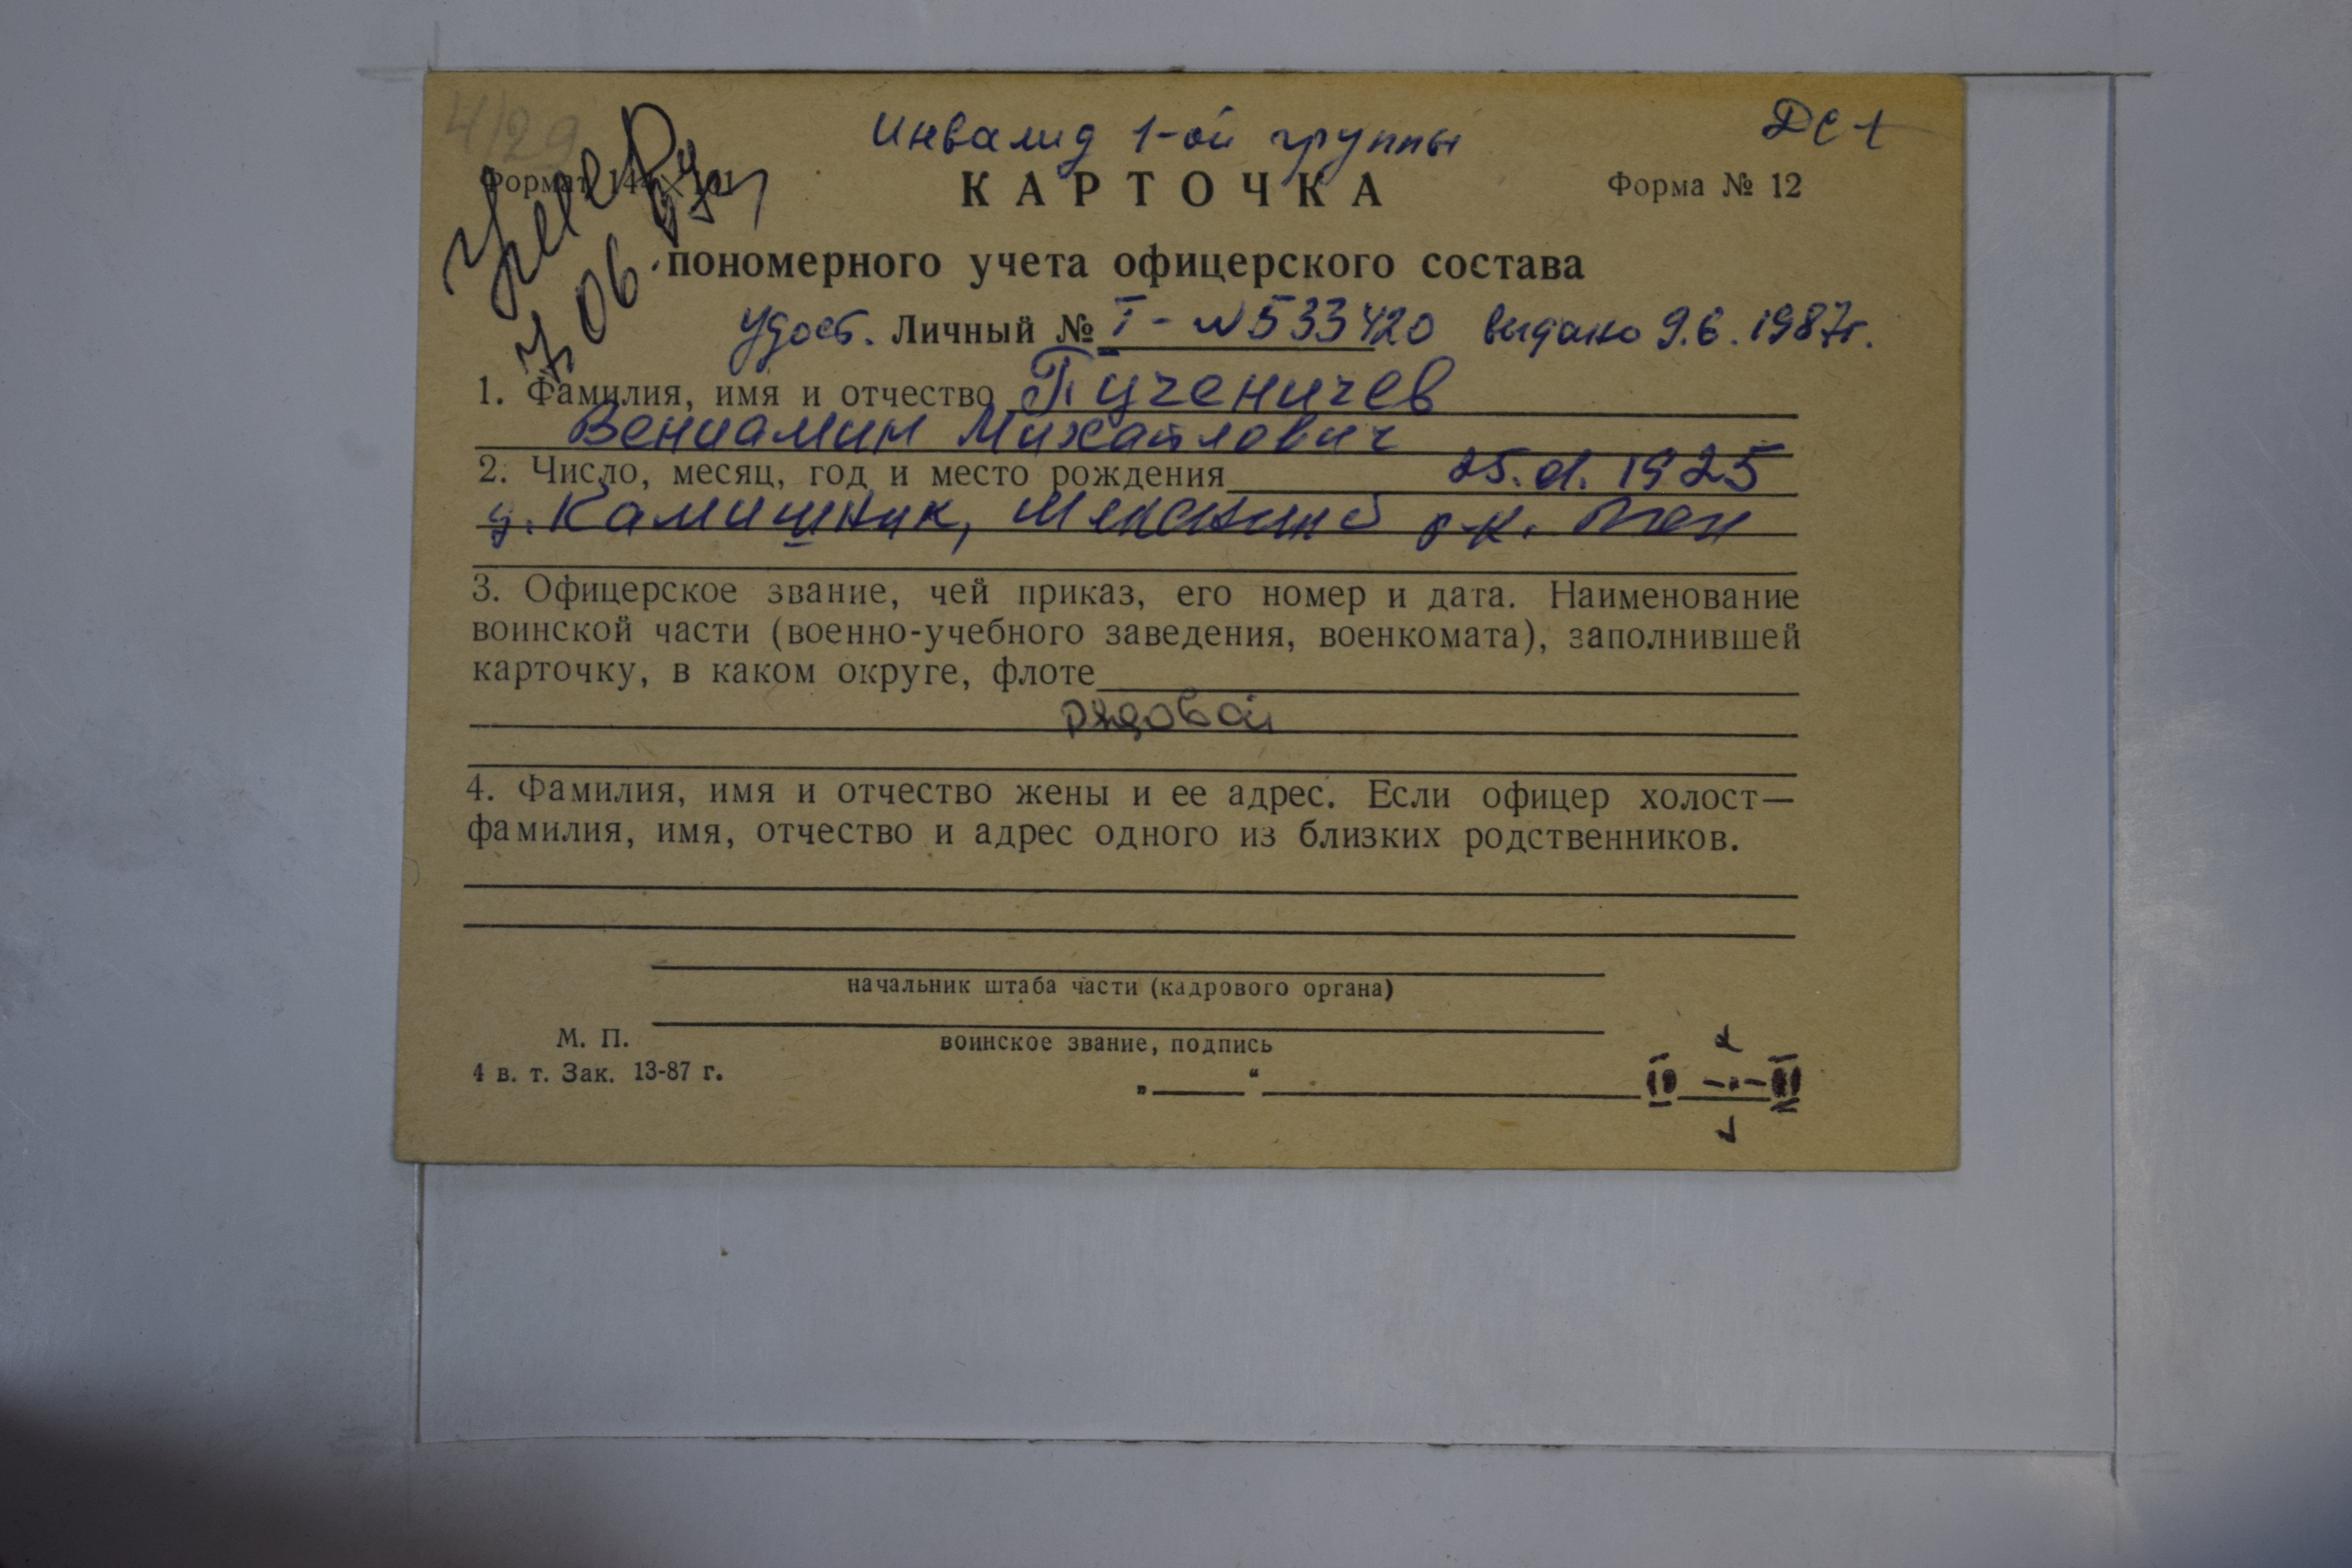 4/29
Инвалид 1-ой группы
Формат
КАРТОЧКА
Форма № 12
Умер
7 06
пономерного учета офицерского состава
удост. Личный № I - №533420 выдано 9.6.1987г.
1. Фамилия, имя и отчество Пученичев
Вениамин Михайлович
2. Число, месяц, год и место рождения 1925
д. Камишник,
3. Офицерское звание, чей приказ, его номер и дата. Наименование
воинской части (военно-учебного заведения, военкомата), заполнившей
карточку, в каком округе, флоте
рядовой
4. Фамилия, имя и отчество жены и ее адрес. Если офицер холост—
фамилия, имя, отчество и адрес одного из близких родственников.
начальник штаба части (кадрового органа)
М. П.
воинское звание, подпись
4 в. т. Зак. 13-87 г.
„ “